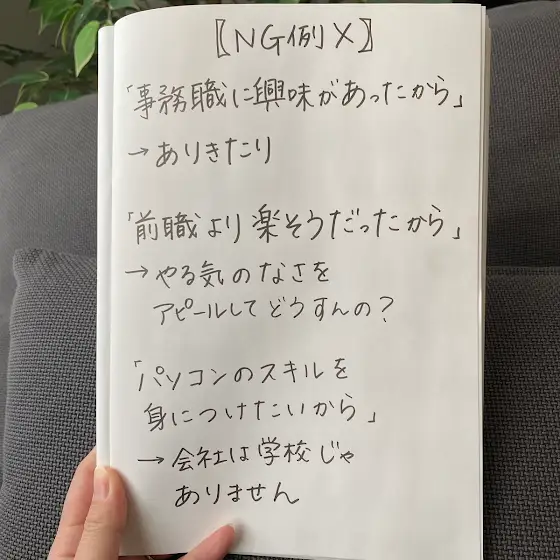 〖NG例×〗
「事務職に興味があったから」
→ありきたり
「前職より楽そうだったから」
→やる気のなさを
アピールしてどうすんの?
「パソコンのスキルを
身につけたいから」
→会社は学校じゃ
ありません